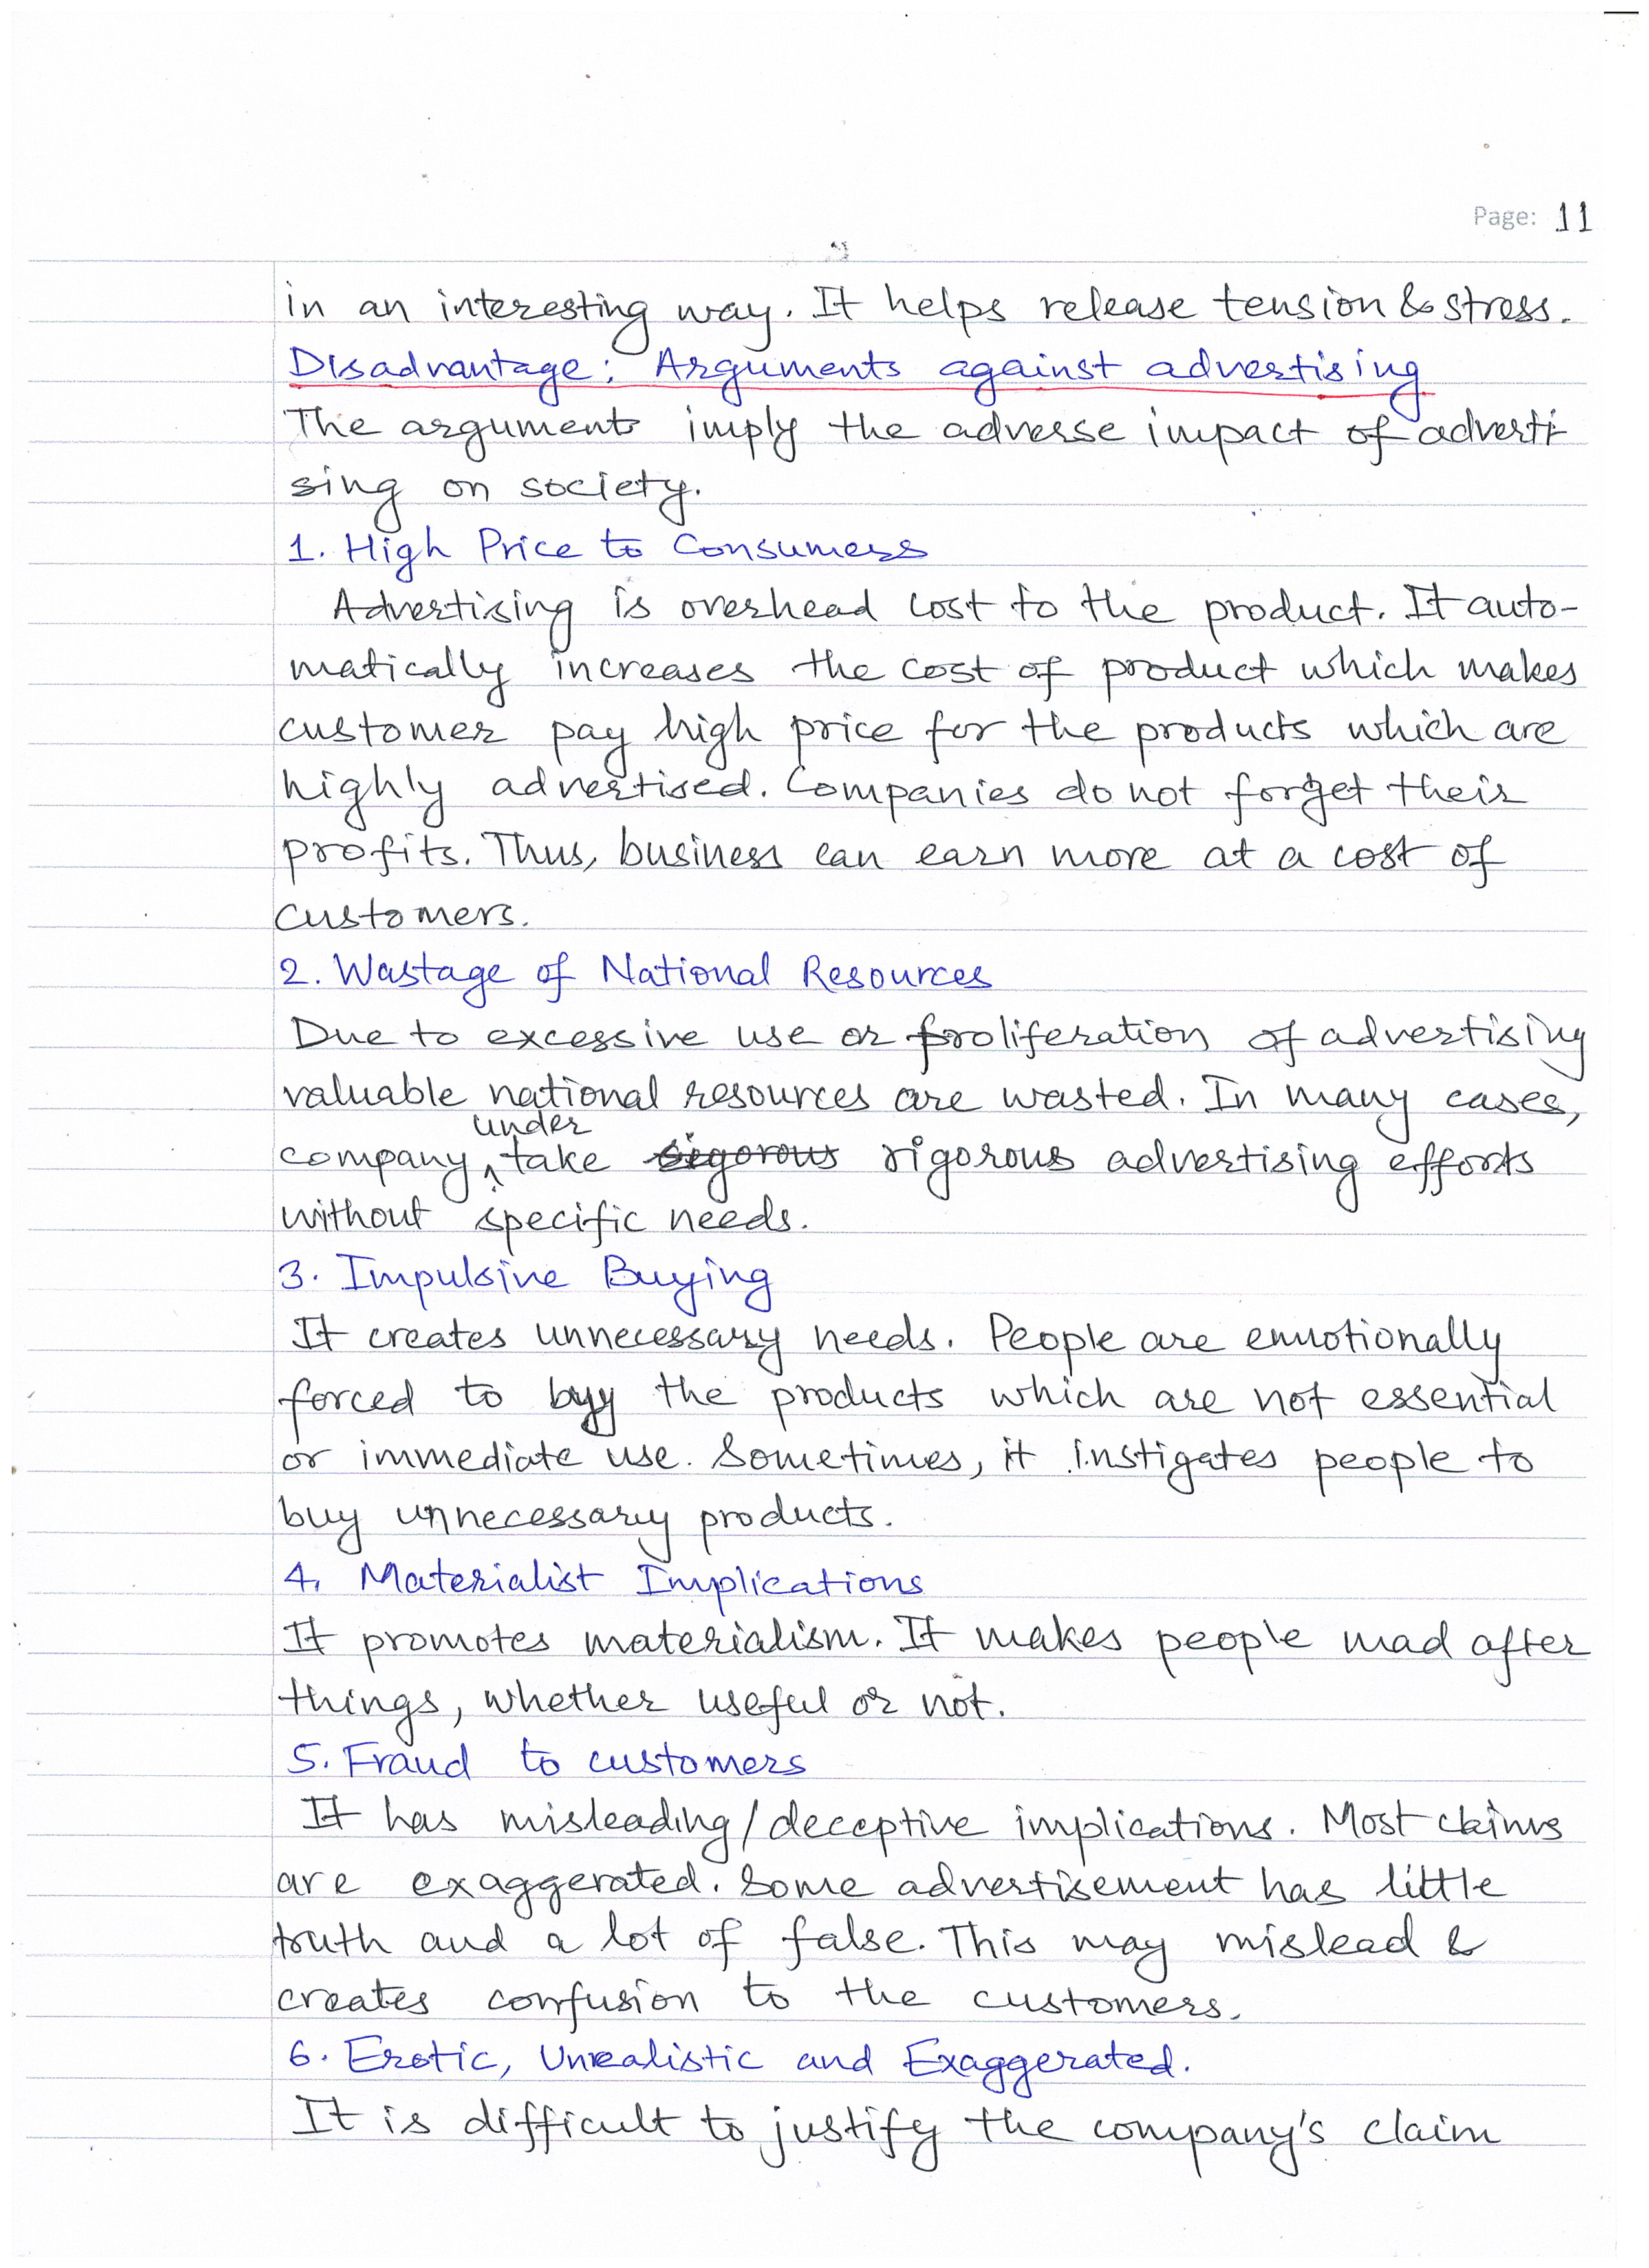 Page: 11
in an interesting way. It helps release tension & stress.
Disadvantage: Arguments against advertising
The arguments imply the adverse impact of adverti-
sing on society.
1. High Price to Consumers
Advertising is overhead cost to the product. It auto-
matically increases the cost of product which makes
customer pay high price for the products which are
highly advertised. Companies do not forget their
profits. Thus, business can earn more at a cost of
customers.
2. Wastage of National Resources
Due to excessive use or proliferation of advertising
valuable national resources are wasted. In many cases,
under
company ^ take rigorous rigorous advertising efforts
without specific needs.
3. Impulsive Buying
It creates unnecessary needs. People are emotionally
forced to buy the products which are not essential
or immediate use. Sometimes, it instigates people to
buy unnecessary products.
4. Materialist Implications
It promotes materialism. It makes people mad after
things, whether useful or not.
5. Fraud to customers
It has misleading/deceptive implications. Most claims
are exaggerated. Some advertisement has little
truth and a lot of false. This may mislead &
creates confusion to the customers.
6. Erotic, Unrealistic and Exaggerated.
It is difficult to justify the company's claim